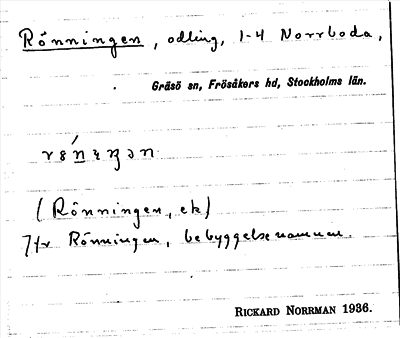 Rönningen, odling, 1-4 Norrboda,
Gräsö sn, Frösåkers hd, Stockholms län.
(Rönningen, ek)
Jfr Rönningen, bebyggelsenamnen.
RICKARD NORRMAN 1936.